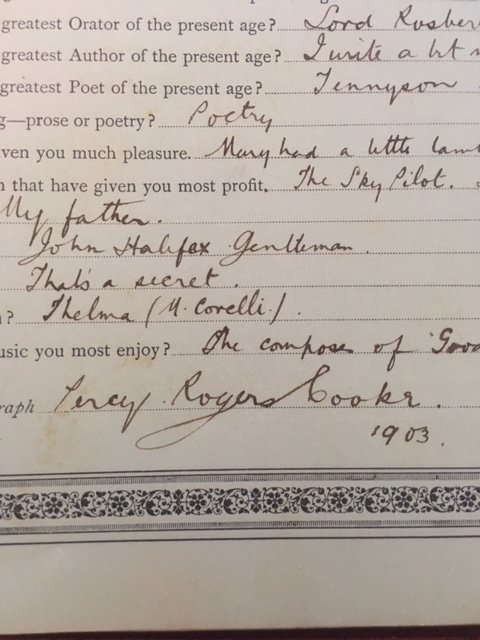 greatest Orator of the present age? Lord Rosber
greatest Author of the present age? I write a bit
greatest Poet of the present age? Tennyson
g—prose or poetry? Poetry
iven you much pleasure. Mary had a little lamb
n that have given you most profit. The Sky Pilot.
My father.
John Halifax Gentleman.
That's a secret.
n? Thelma (M. Corelli).
usic you most enjoy? The composer of "Good
raph Percy Rogers Cooke.
1903.